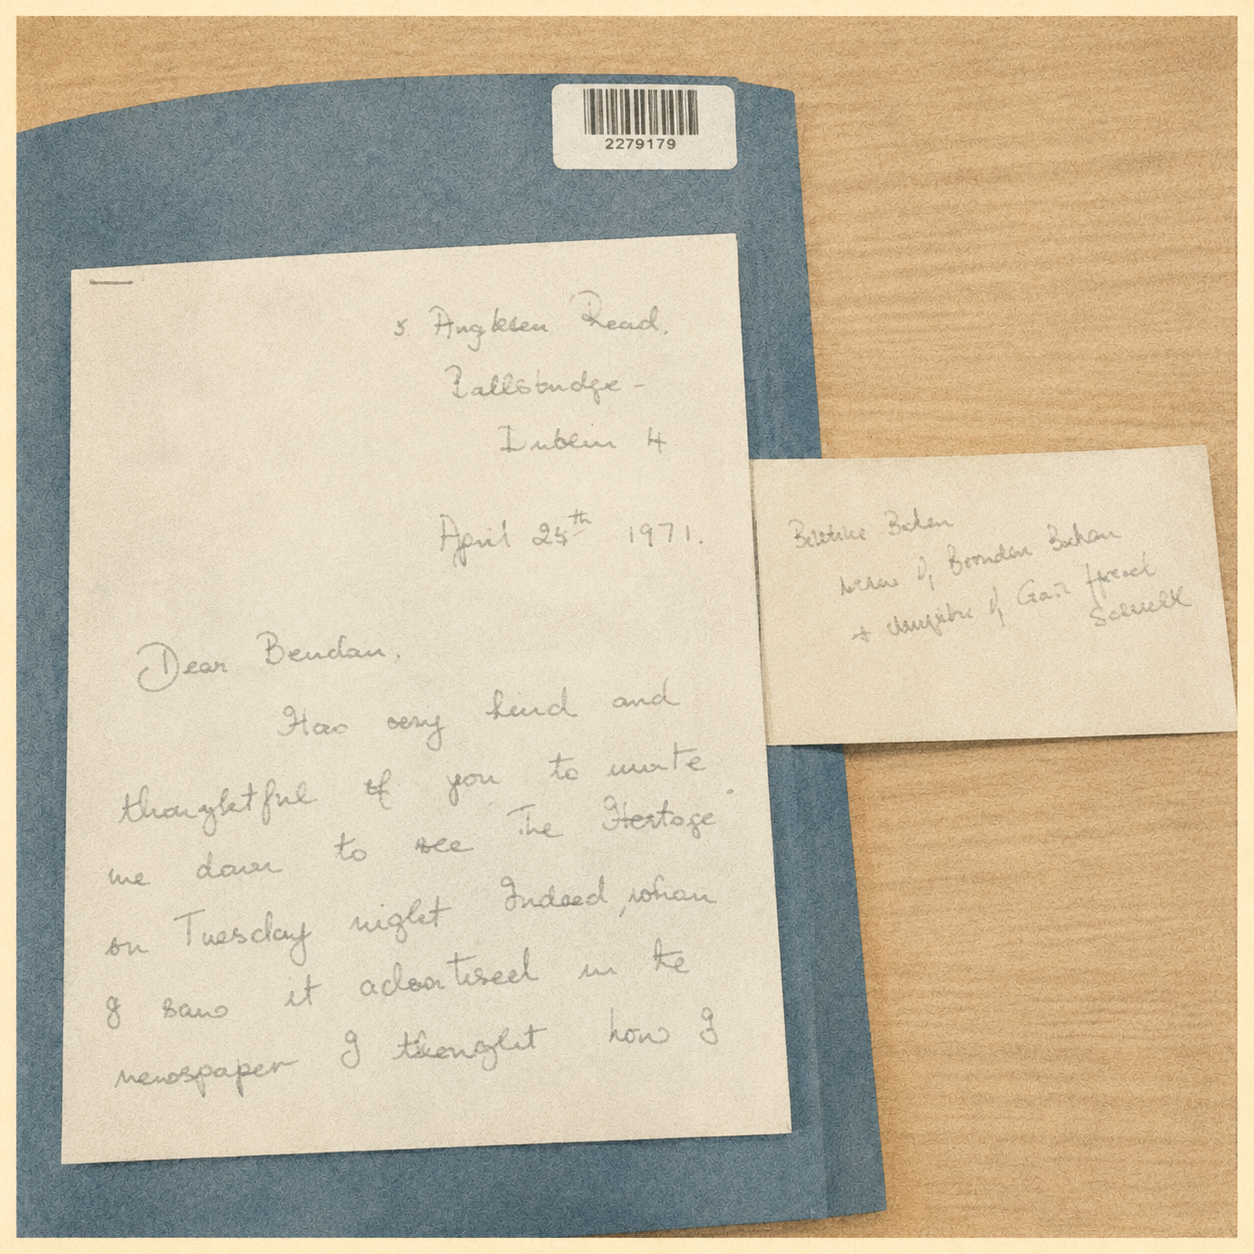 2279179
5 Anglesea Road.
Ballsbridge -
Dublin 4
April 25th 1971.
Dear Bendan.
How very kind and
thoughtful of you to invite
me down to see The Hostage
on Tuesday night Indeed, when
I saw it advertised in the
newspaper I thought how I
Beatrice Behan
of Brendan Behan
+ daughter of Cecil ffrench
Salkeld